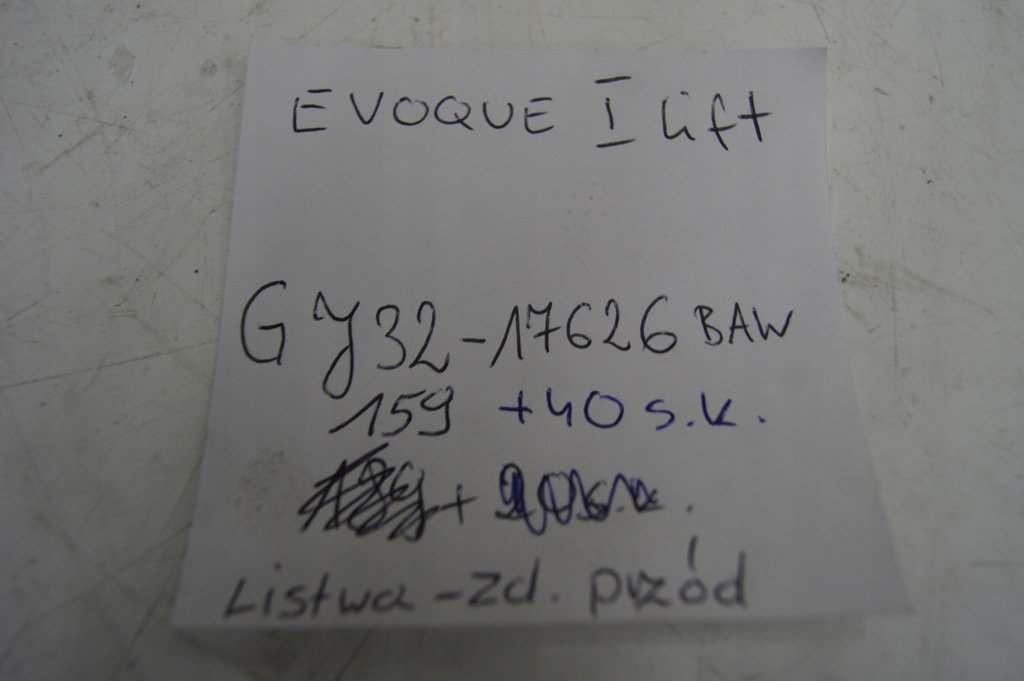 EVOQUE I lift
GJ32-17626 BAW
159 +40 s.k.
Listwa - zd. przód